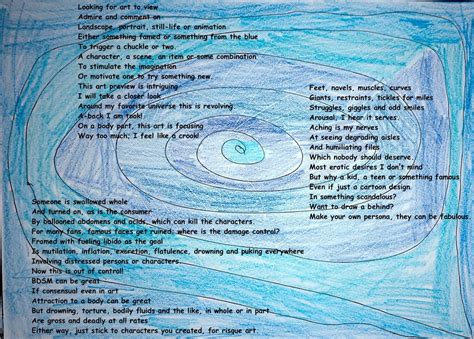 Looking for art to view
Admire and comment on
Landscape, portrait, still-life or animation.
Either something famed or something from the blue
To trigger a chuckle or two.
A character, a scene, an item or some combination
To stimulate the imagination
Or motivate one to try something new.
This art preview is intriguing
I will take a closer look
Around my favorite universe this is revolving.
A-back I am took!
On a body part, this art is focusing
Way too much; I feel like a crook!
Feet, navels, muscles, curves
Giants, restraints, tickles for miles
Struggles, giggles and odd smiles
Arousal, I hear it serves.
Aching is my nerves
At seeing degrading aisles
And humiliating files
Which nobody should deserve.
Most erotic desires I don't mind
But why a kid, a teen or something famous
Even if just a cartoon design.
In something scandalous?
Want to draw a behind?
Make your own persona, they can be fabulous.
Someone is swallowed whole
And turned on, as is the consumer
By ballooned abdomens and acids, which can kill the characters.
For many fans, famous faces get ruined; where is the damage control?
Framed with fueling libido as the goal
Is mutilation, inflation, excretion, flatulence, drowning and puking everywhere
Involving distressed persons or characters.
Now this is out of control!
BDSM can be great
If consensual even in art
Attraction to a body can be great
But drowning, torture, bodily fluids and the like, in whole or in part
Are gross and deadly at all rates
Either way, just stick to characters you created, for risque art.